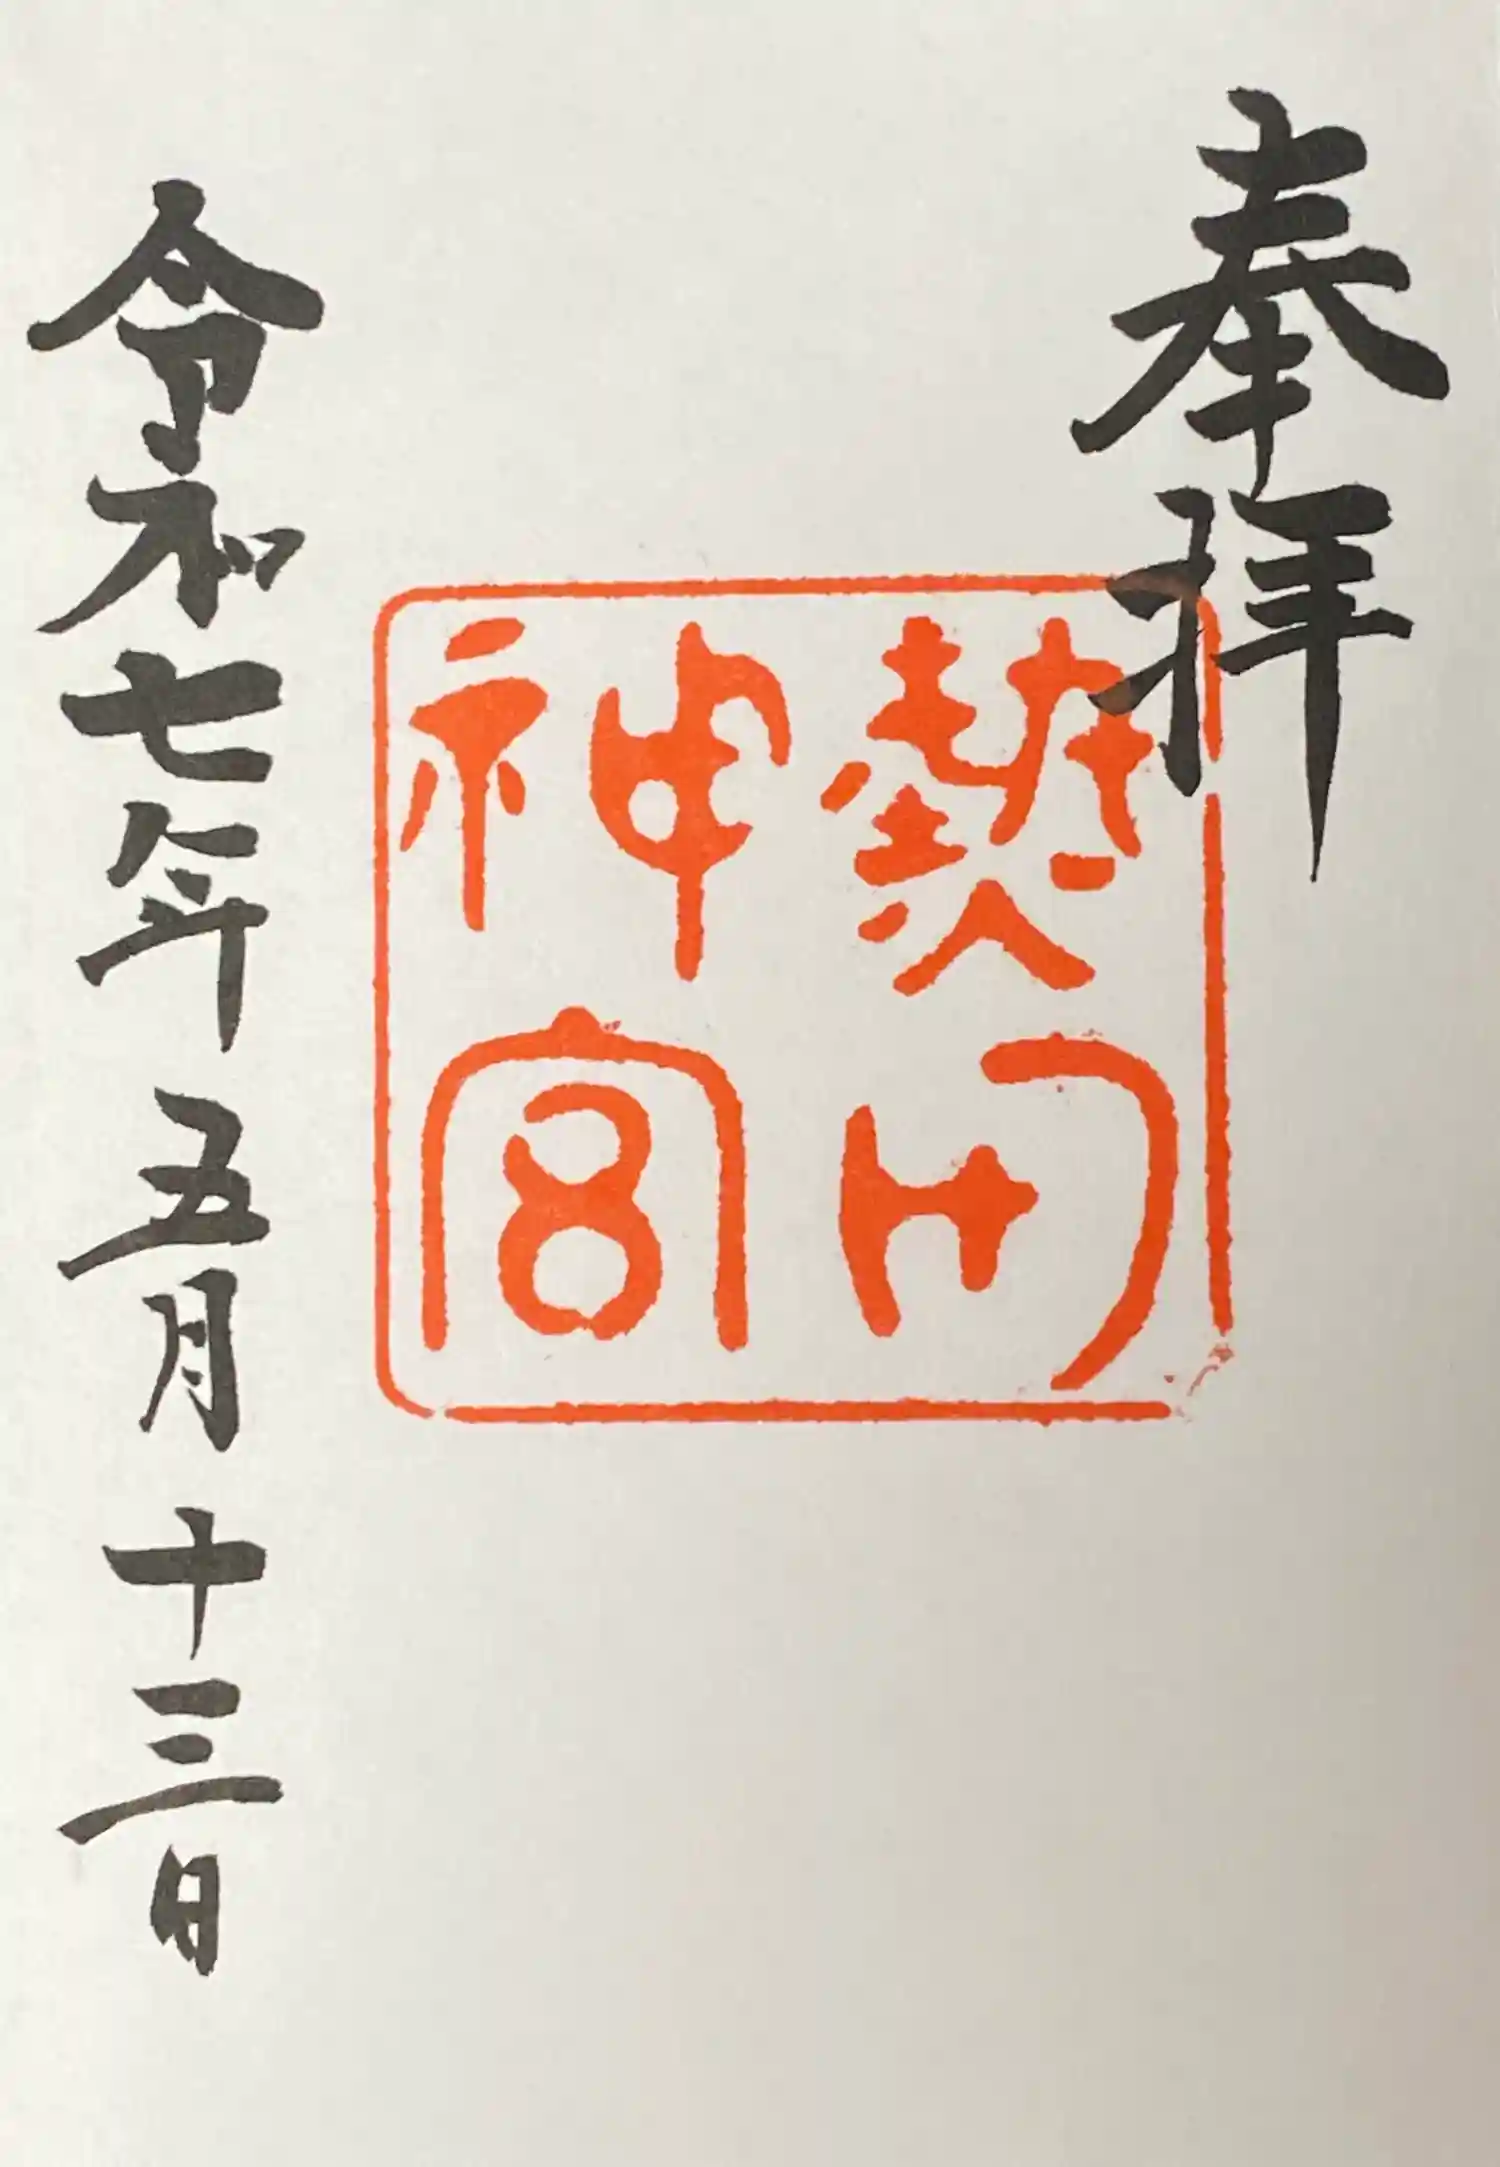 奉拝
熱田
神宮
令和七年五月十三日